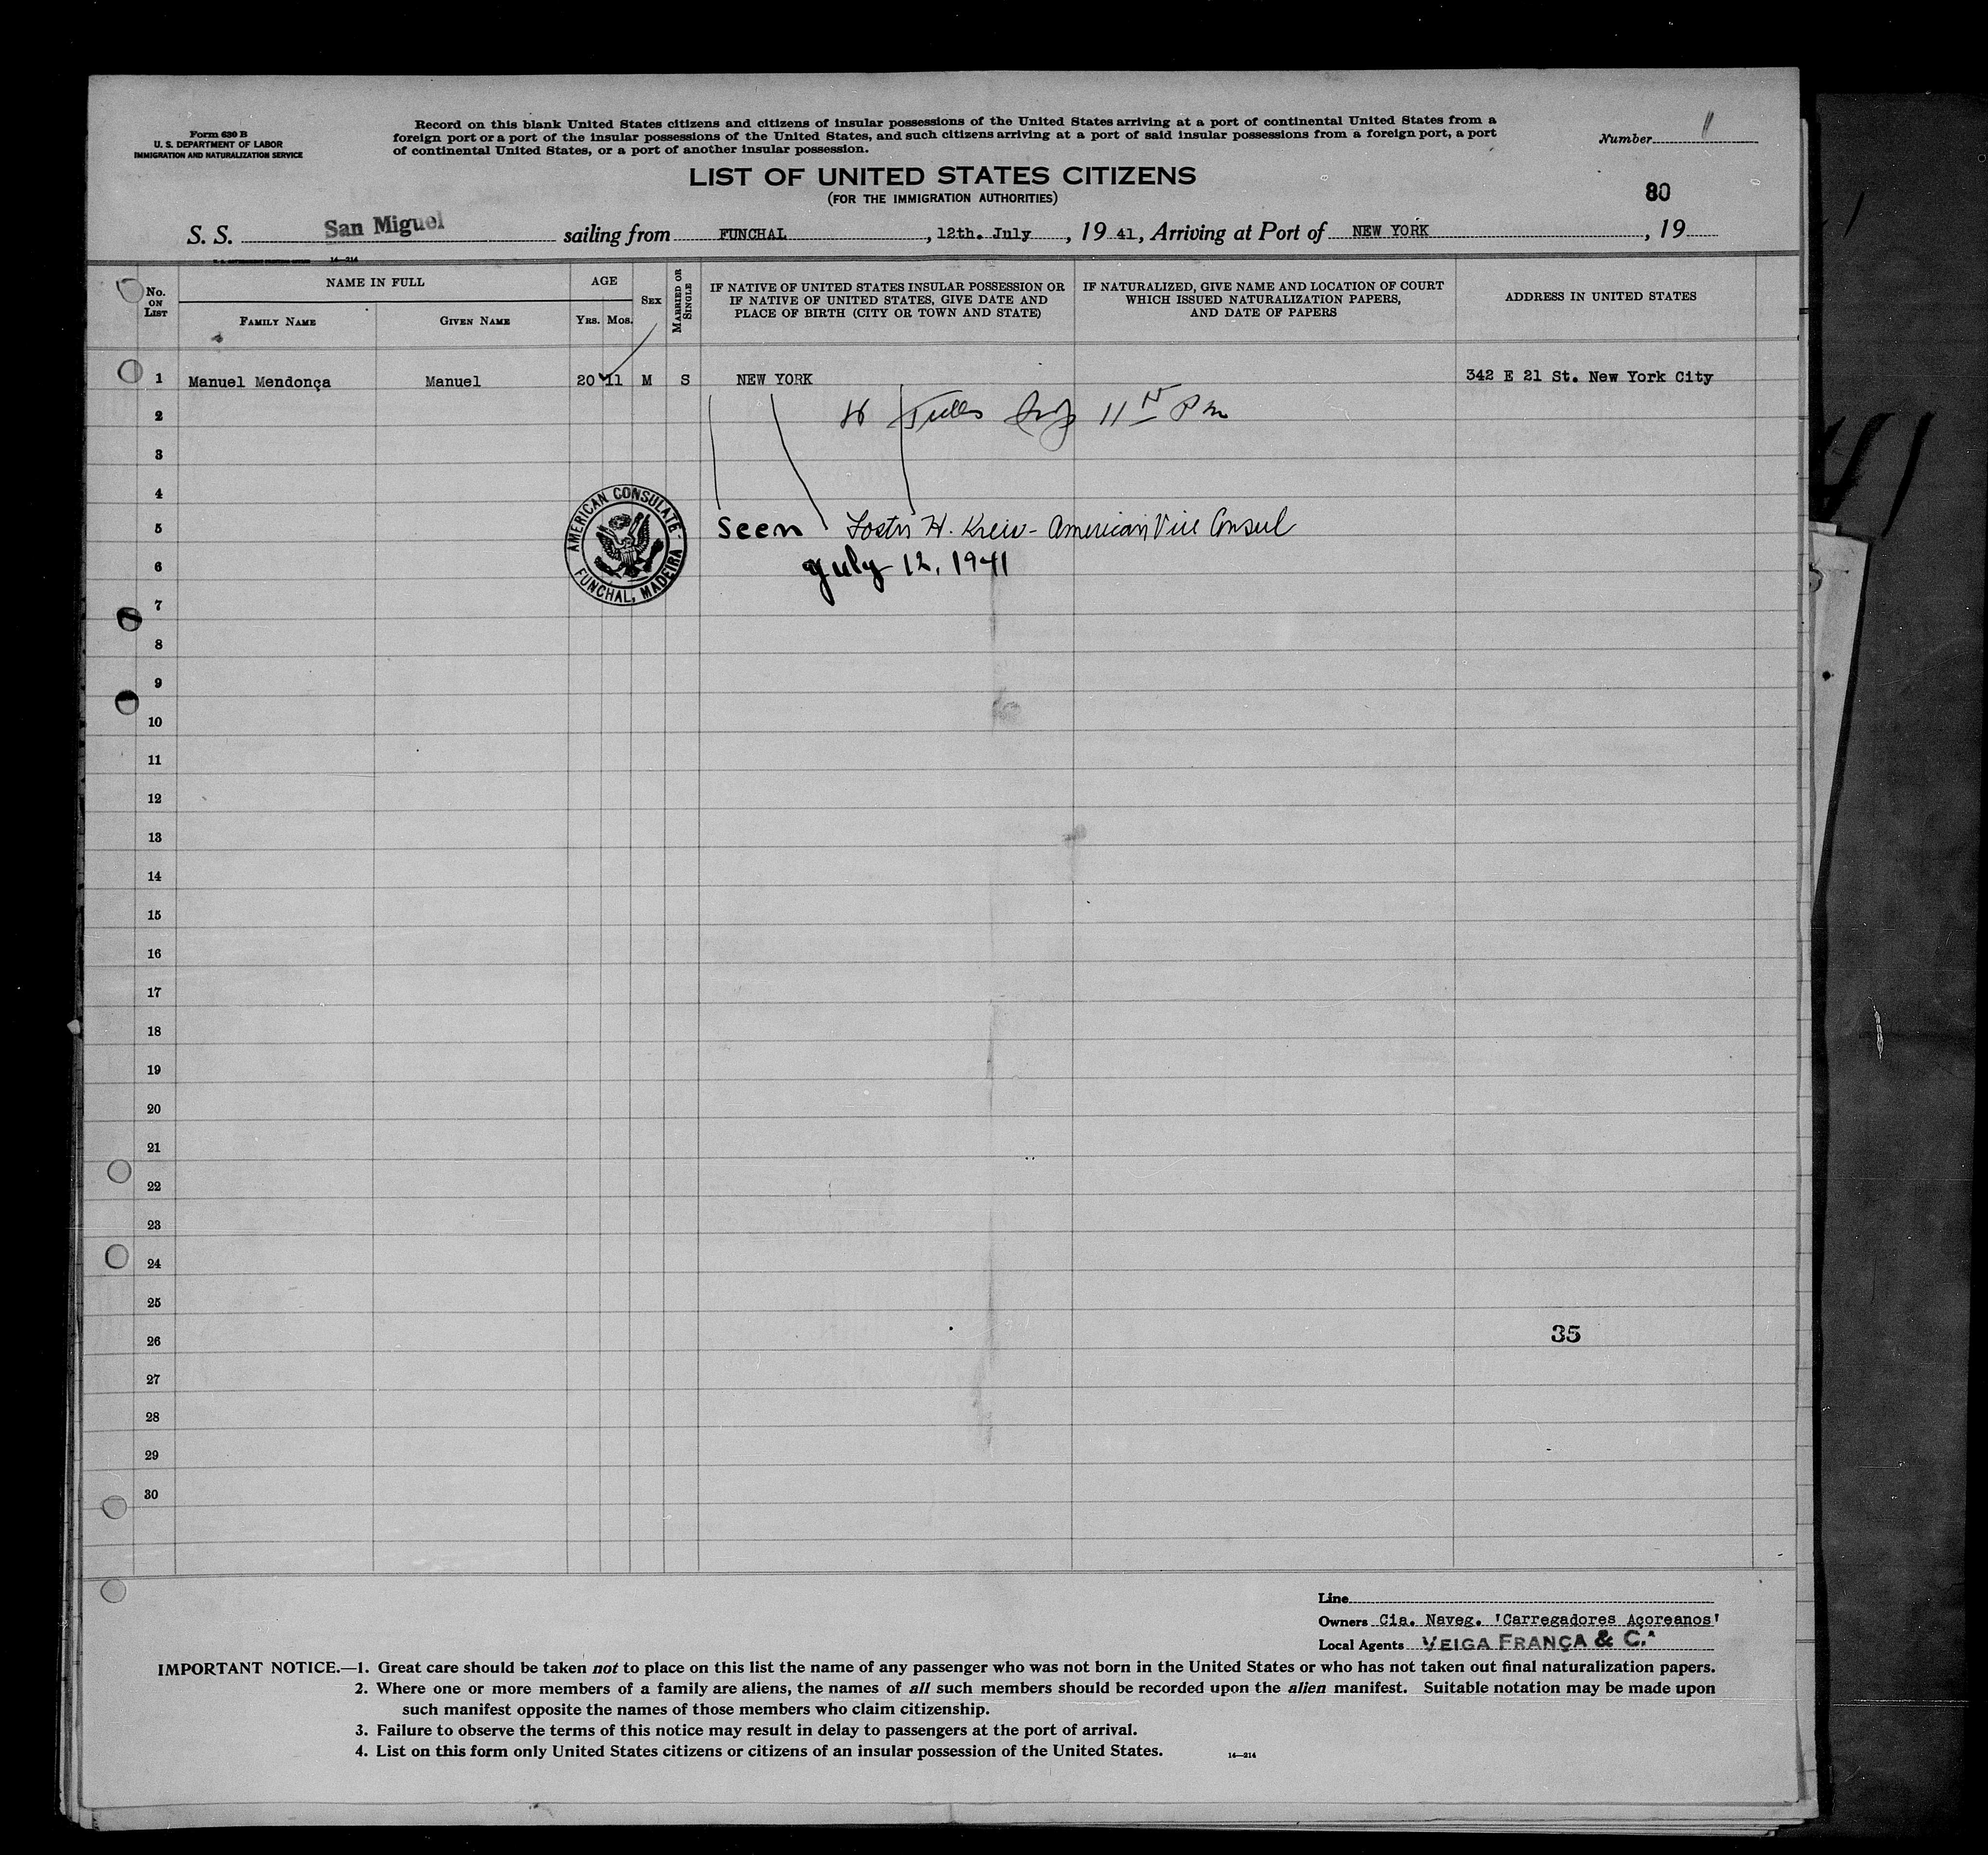 Form 630 B
U. S. DEPARTMENT OF LABOR
IMMIGRATION AND NATURALIZATION SERVICE
Record on this blank United States citizens and citizens of insular possessions of the United States arriving at a port of continental United States from a
foreign port or a port of the insular possessions of the United States, and such citizens arriving at a port of said insular possessions from a foreign port, a port
of continental United States, or a port of another insular possession.
Number
LIST OF UNITED STATES CITIZENS
(FOR THE IMMIGRATION AUTHORITIES)
80
S. S. San Miguel sailing from FUNCHAL, 12th. July, 19 41, Arriving at Port of NEW YORK, 19
14—214
No. ON LIST
NAME IN FULL
FAMILY NAME
GIVEN NAME
AGE
YRS. MOS.
SEX
MARRIED OR SINGLE
IF NATIVE OF UNITED STATES INSULAR POSSESSION OR
IF NATIVE OF UNITED STATES, GIVE DATE AND
PLACE OF BIRTH (CITY OR TOWN AND STATE)
IF NATURALIZED, GIVE NAME AND LOCATION OF COURT
WHICH ISSUED NATURALIZATION PAPERS,
AND DATE OF PAPERS
ADDRESS IN UNITED STATES
1 Manuel Mendonça Manuel 20 11 M S NEW YORK 342 E 21 St. New York City
2
3
4
AMERICAN CONSULATE
FUNCHAL, MADEIRA
5 Seen H. American Vice Consul
6 July 12, 1941
7
8
9
10
11
12
13
14
15
16
17
18
19
20
21
22
23
24
25
26 35
27
28
29
30
Line
Owners Cia. Naveg. 'Carregadores Açoreanos'
Local Agents VEIGA FRANÇA & C.ª
IMPORTANT NOTICE.—1. Great care should be taken not to place on this list the name of any passenger who was not born in the United States or who has not taken out final naturalization papers.
2. Where one or more members of a family are aliens, the names of all such members should be recorded upon the alien manifest. Suitable notation may be made upon
such manifest opposite the names of those members who claim citizenship.
3. Failure to observe the terms of this notice may result in delay to passengers at the port of arrival.
4. List on this form only United States citizens or citizens of an insular possession of the United States. 14—214